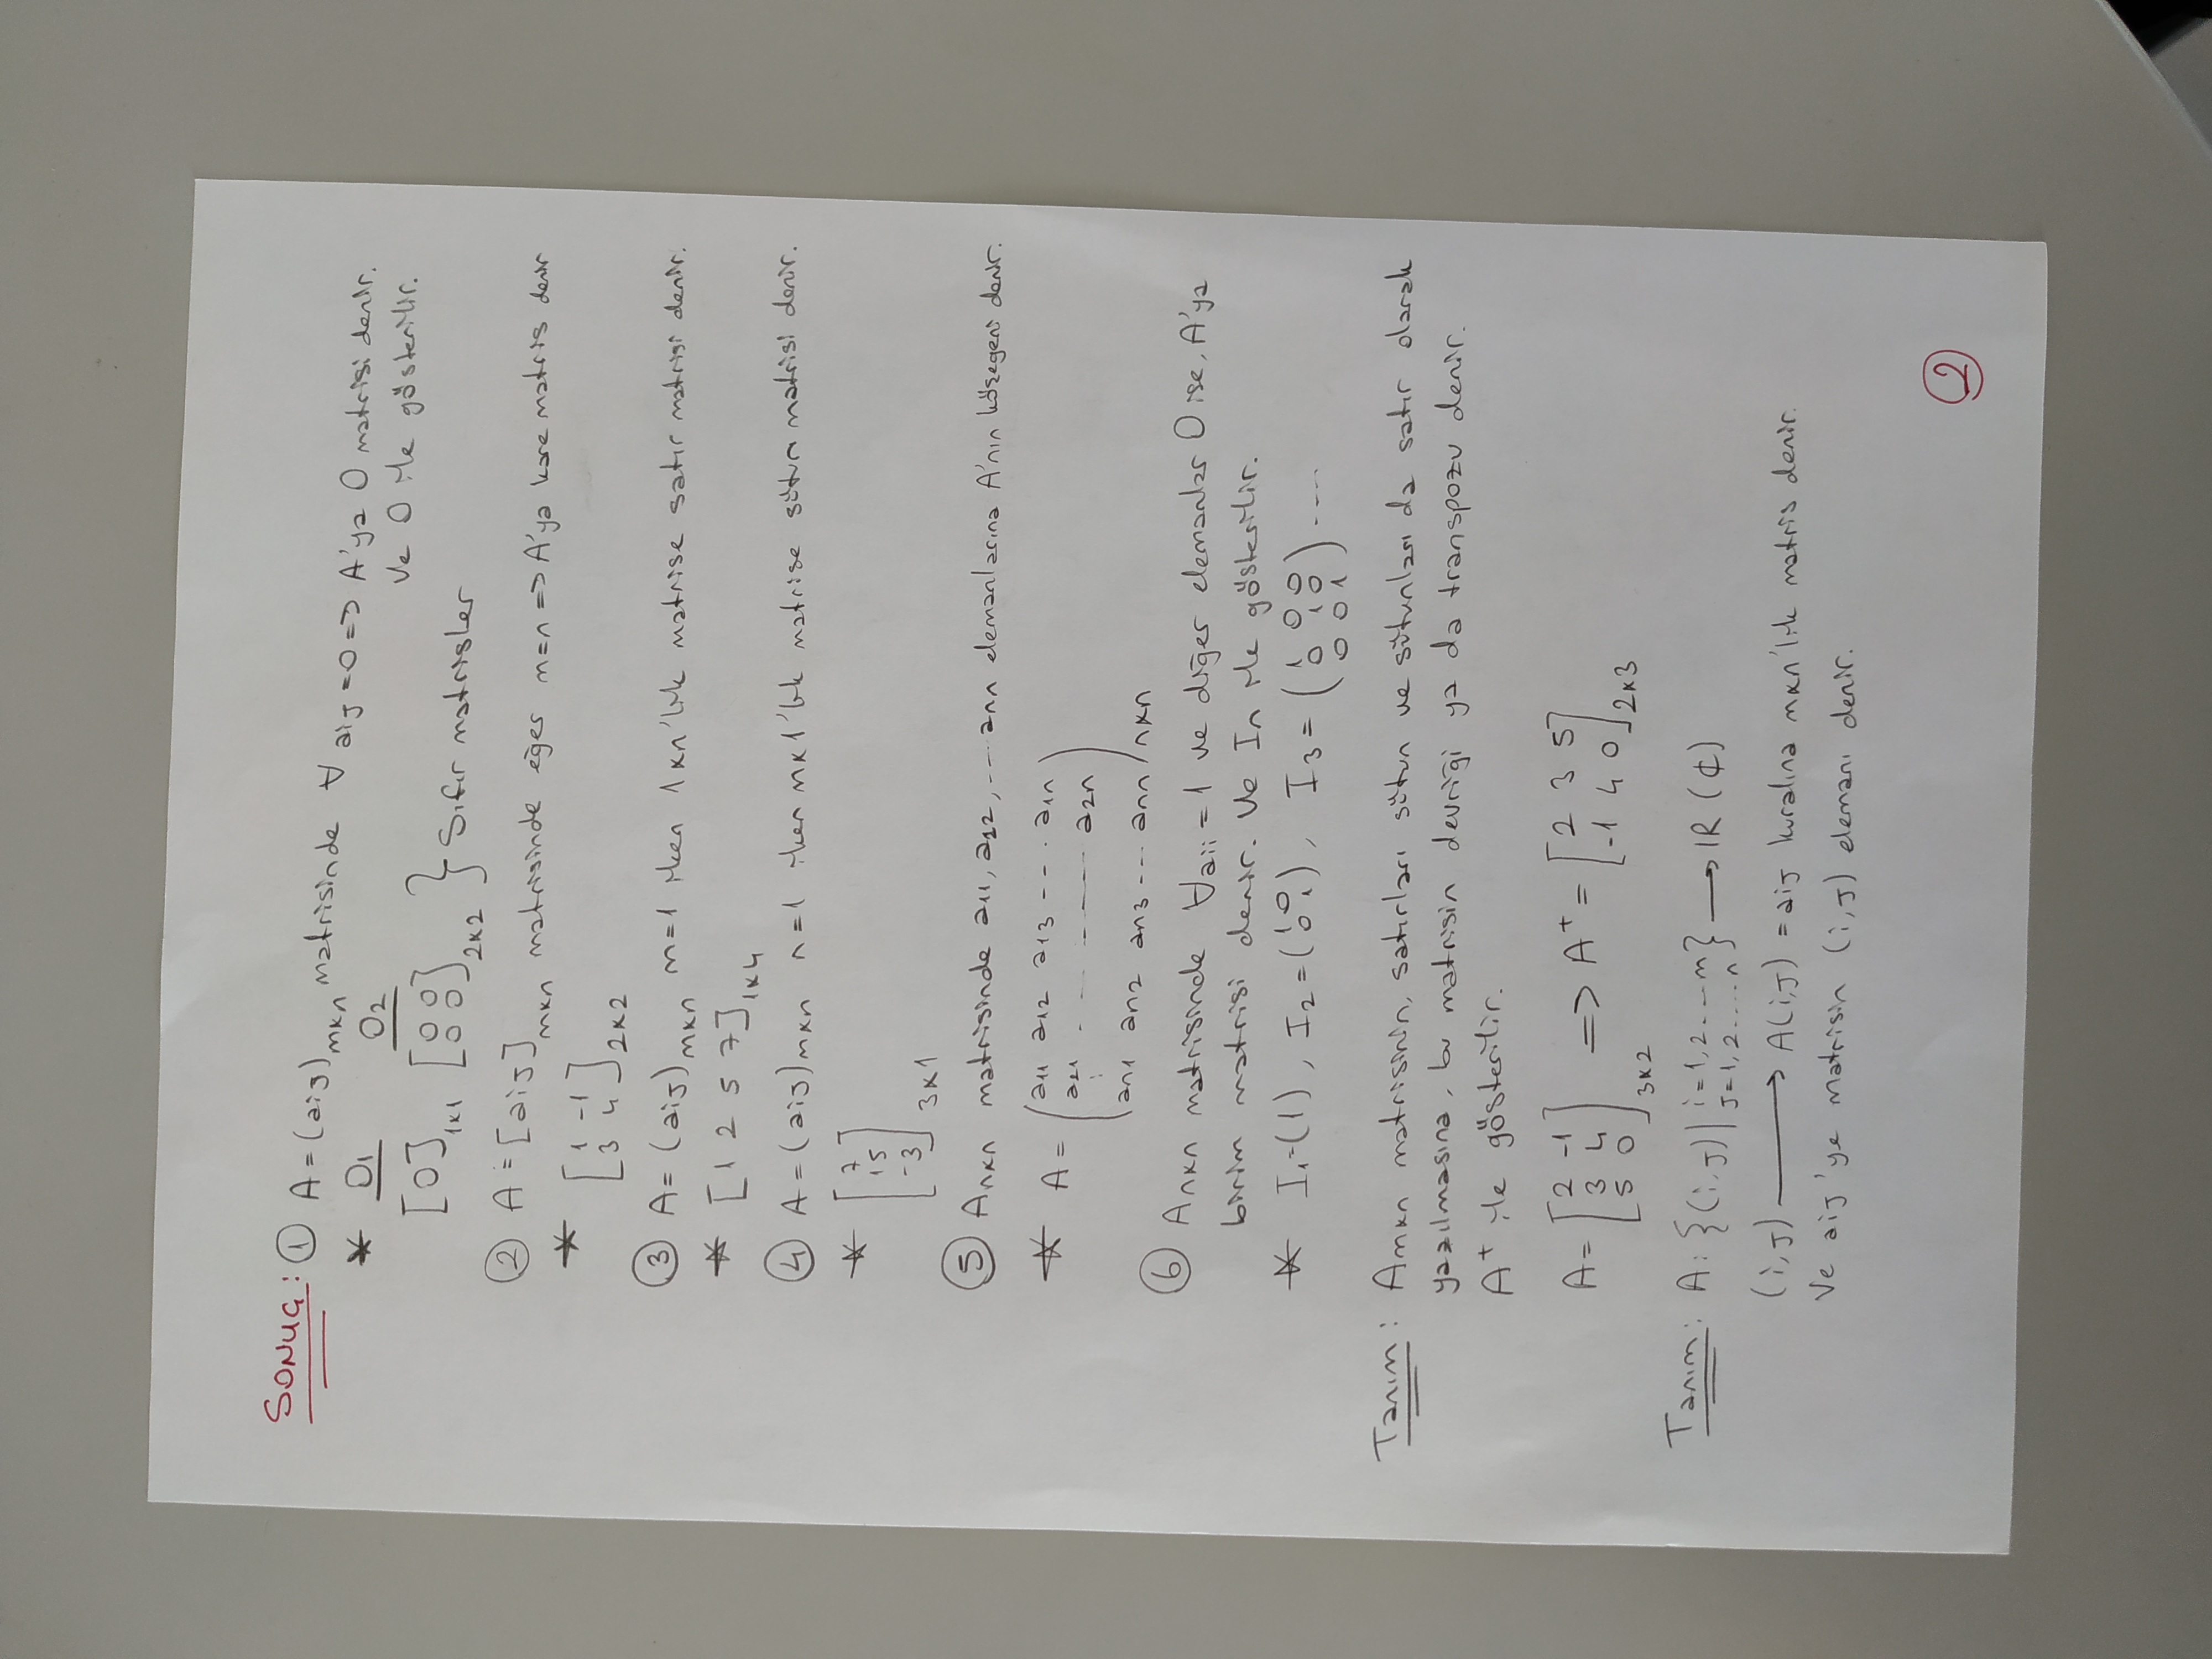 SONUÇ: ① A = (aij)mxn matrisinde ∀ aij = 0 => A'ya 0 matrisi denir.
Ve 0 ile gösterilir.
* O1 O2
[0]1x1 [0 0 / 0 0]2x2 } Sıfır matrisler
② A = [aij]mxn matrisinde eğer m=n => A'ya kare matris denir
* [1 -1 / 3 4]2x2
③ A = (aij)mxn m=1 iken 1xn'lik matrise satır matrisi denir.
* [1 2 5 7]1x4
④ A = (aij)mxn n=1 iken mx1'lik matrise sütun matrisi denir.
* [7 / 15 / -3]3x1
⑤ Anxn matrisinde a11, a22, --- ann elemanlarına A'nın köşegeni denir.
* A = (a11 a12 a13 --- a1n
a21 - - - ---- a2n
⋮
an1 an2 an3 --- ann)nxn
⑥ Anxn matrisinde ∀aii = 1 ve diğer elemanlar 0 ise, A'ya
birim matrisi denir. Ve In ile gösterilir.
* I1=(1), I2=(1 0 / 0 1), I3 = (1 0 0 / 0 1 0 / 0 0 1) ----
Tanım: Amxn matrisinin, satırları sütun ve sütunları da satır olarak
yazılmasına, bu matrisin devriği ya da transpozu denir.
A^t ile gösterilir.
A = [2 -1 / 3 4 / 5 0]3x2 => A^t = [2 3 5 / -1 4 0]2x3
Tanım: A: {(i,J) | i=1,2....m / J=1,2.....n} → IR (ℂ)
(i,J) → A(i,J) = aij kuralına mxn'lik matris denir.
Ve aij'ye matrisin (i,J) elemanı denir.
②